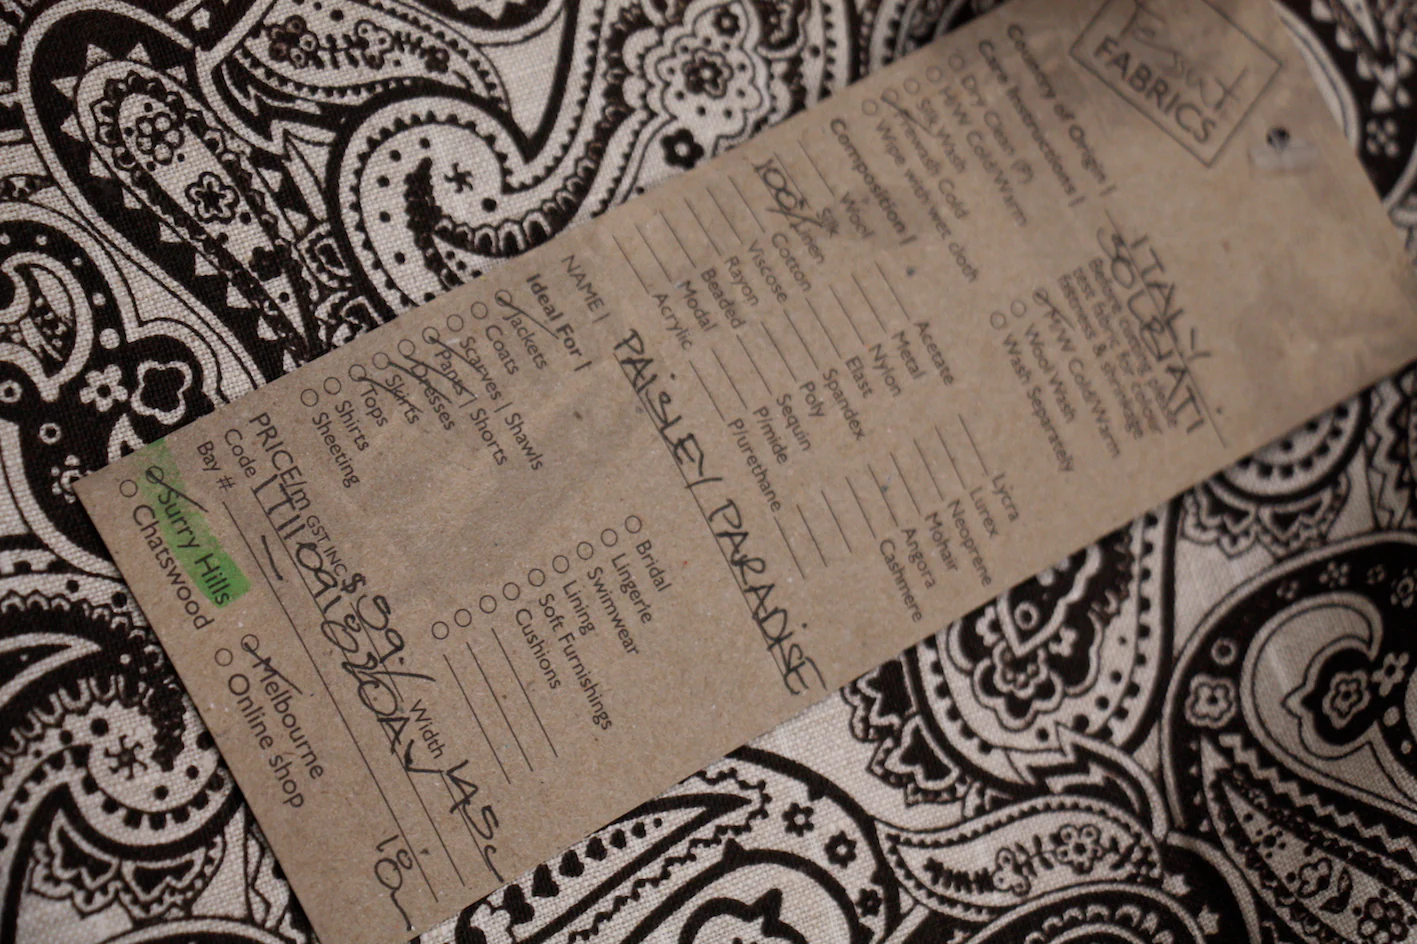 Tessuti
FABRICS
Country of Origin | ITALY
SOLERATI
Care Instructions |
Before cutting please
test fabric for colour
fastness & shrinkage
Dry Clean (P)
H/W Cold/Warm
Silk Wash
Prewash Cold
Wipe with wet cloth
M/W Cold/Warm
Wool Wash
Wash Separately
Composition |
Wool
Silk
100% Linen
Cotton
Viscose
Rayon
Beaded
Modal
Acrylic
Acetate
Metal
Nylon
Elast
Spandex
Poly
Sequin
P/mide
P/urethane
Lycra
Lurex
Neoprene
Mohair
Angora
Cashmere
NAME | PAISLEY PARADISE
Ideal For |
Jackets
Coats
Scarves | Shawls
Pants | Shorts
Dresses
Skirts
Tops
Shirts
Sheeting
Bridal
Lingerie
Swimwear
Lining
Soft Furnishings
Cushions
PRICE/m GST INC $ 99.- Width 145c
Code
Bay # -
Surry Hills
Chatswood
Melbourne
Online shop